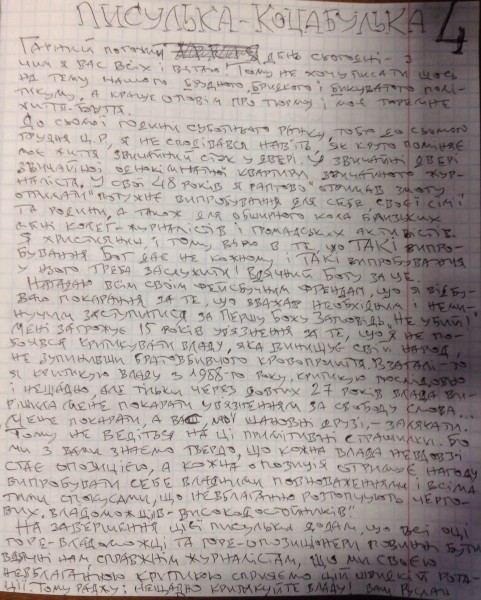 ПИСУЛЬКА-КОЦАБУЛЬКА 4
ГАРНИЙ ПОГОЖИЙ ДЕНЬ СЬОГОДНІ - З
ЧИМ Я ВАС ВСІХ І ВІТАЮ! ТОМУ НЕ ХОЧУ ПИСАТИ ЩОСЬ
НА ТЕМУ НАШОГО БРУДНОГО, БРИДКОГО І БИКУВАТОГО ПОЛІ-
ТИКУМУ, А КРАЩЕ ОПОВІМ ПРО ТЮРМУ І МОЄ ТЮРЕМНЕ
ЖИТТЯ-БУТТЯ.
ДО СЬОМОЇ ГОДИНИ СУБОТНЬОГО РАНКУ, ТОБТО ДО СЬОМОГО
ГРУДНЯ Ц.Р., Я НЕ СПОДІВАВСЯ НАВІТЬ, ЯК КРУТО ПОМІНЯЄ
МОЄ ЖИТТЯ ЗВИЧАЙНИЙ СТУК У ДВЕРІ. У ЗВИЧАЙНІ ДВЕРІ
ЗВИЧАЙНОЇ ОДНОКІМНАТНОЇ КВАРТИРИ ЗВИЧАЙНОГО ЖУР-
НАЛІСТА. У СВОЇ 48 РОКІВ Я РАПТОВО ОТРИМАВ ЗМОГУ
ОТРИМАТИ ПОТУЖНЕ ВИПРОБУВАННЯ ДЛЯ СЕБЕ, СВОЄЇ СІМ'Ї
ТА РОДИНИ, А ТАКОЖ ДЛЯ ОБШИРНОГО КОЛА БЛИЗЬКИХ
МЕНІ КОЛЕГ-ЖУРНАЛІСТІВ І ГРОМАДСЬКИХ АКТИВІСТІВ.
Я ХРИСТИЯНИН, І ТОМУ ВІРЮ В ТЕ, ЩО ТАКІ ВИПРО-
БУВАННЯ БОГ ДАЄ НЕ КОЖНОМУ І ТАКІ ВИПРОБУВАННЯ
У НЬОГО ТРЕБА ЗАСЛУЖИТИ! ВДЯЧНИЙ БОГУ ЗА ЦЕ.
НАГАДАЮ ВСІМ СВОЇМ ФЕЙСБУЧНИМ ФРЕНДАМ, ЩО Я ВІДБУ-
ВАЮ ПОКАРАННЯ ЗА ТЕ, ЩО ВВАЖАВ НЕОБХІДНИМ І НЕМИ-
НУЧИМ ЗАСТУПИТИСЯ ЗА ПЕРШУ БОЖУ ЗАПОВІДЬ „НЕ УБИЙ!"
МЕНІ ЗАГРОЖУЄ 15 РОКІВ УВЯЗНЕННЯ ЗА ТЕ, ЩО Я НЕ ПО-
БОЯВСЯ КРИТИКУВАТИ ВЛАДУ, ЯКА ВИНИЩУЄ СВІЙ НАРОД,
НЕ ЗУПИНИВШИ БРАТОВБИВЧОГО КРОВОПРОЛИТТЯ. ВЗАГАЛІ-ТО
Я КРИТИКУЮ ВЛАДУ З 1988-ГО РОКУ. КРИТИКУЮ ПОСЛІДОВНО
І НЕЩАДНО, АЛЕ ТІЛЬКИ ЧЕРЕЗ ДОВГИХ 27 РОКІВ ВЛАДА ВИ-
РІШИЛА МЕНЕ ПОКАРАТИ УВЯЗНЕННЯМ ЗА СВОБОДУ СЛОВА...
МЕНЕ ПОКАРАТИ, А ВАС, МОЇ ШАНОВНІ ДРУЗІ, - ЗАЛЯКАТИ.
ТОМУ НЕ ВЕДІТЬСЯ НА ЦІ ПРИМІТИВНІ СТРАШИЛКИ. БО
МИ З ВАМИ ЗНАЄМО ТВЕРДО, ЩО КОЖНА ВЛАДА НЕВДОВЗІ
СТАЄ ОПОЗИЦІЄЮ, А КОЖНА ОПОЗИЦІЯ ОТРИМУЄ НАГОДУ
ВИПРОБУВАТИ СЕБЕ ВЛАДНИМИ ПОВНОВАЖЕННЯМИ І ВСІМА
ТИМИ СПОКУСАМИ, ЩО НЕВБЛАГАННО РОЗТОПЧУЮТЬ ЧЕРГО-
ВИХ „ВЛАДОМОЖЦІВ-ВИСОКОДОСТОЙНИКІВ".
НА ЗАВЕРШЕННЯ ЦІЄЇ ПИСУЛЬКИ ДОДАМ, ЩО ВСІ ОЦІ
ГОРЕ-ВЛАДОМОЖЦІ ТА ГОРЕ-ОПОЗИЦІОНЕРИ ПОВИННІ БУТИ
ВДЯЧНІ НАМ, СПРАВЖНІМ ЖУРНАЛІСТАМ, ЩО МИ СВОЄЮ
НЕВБЛАГАННОЮ КРИТИКОЮ СПРИЯЄМО ЦІЙ ШВИДКІЙ РОТА-
ЦІЇ. ТОМУ РАДЖУ: НЕЩАДНО КРИТИКУЙТЕ ВЛАДУ! ВАШ РУСЛАН